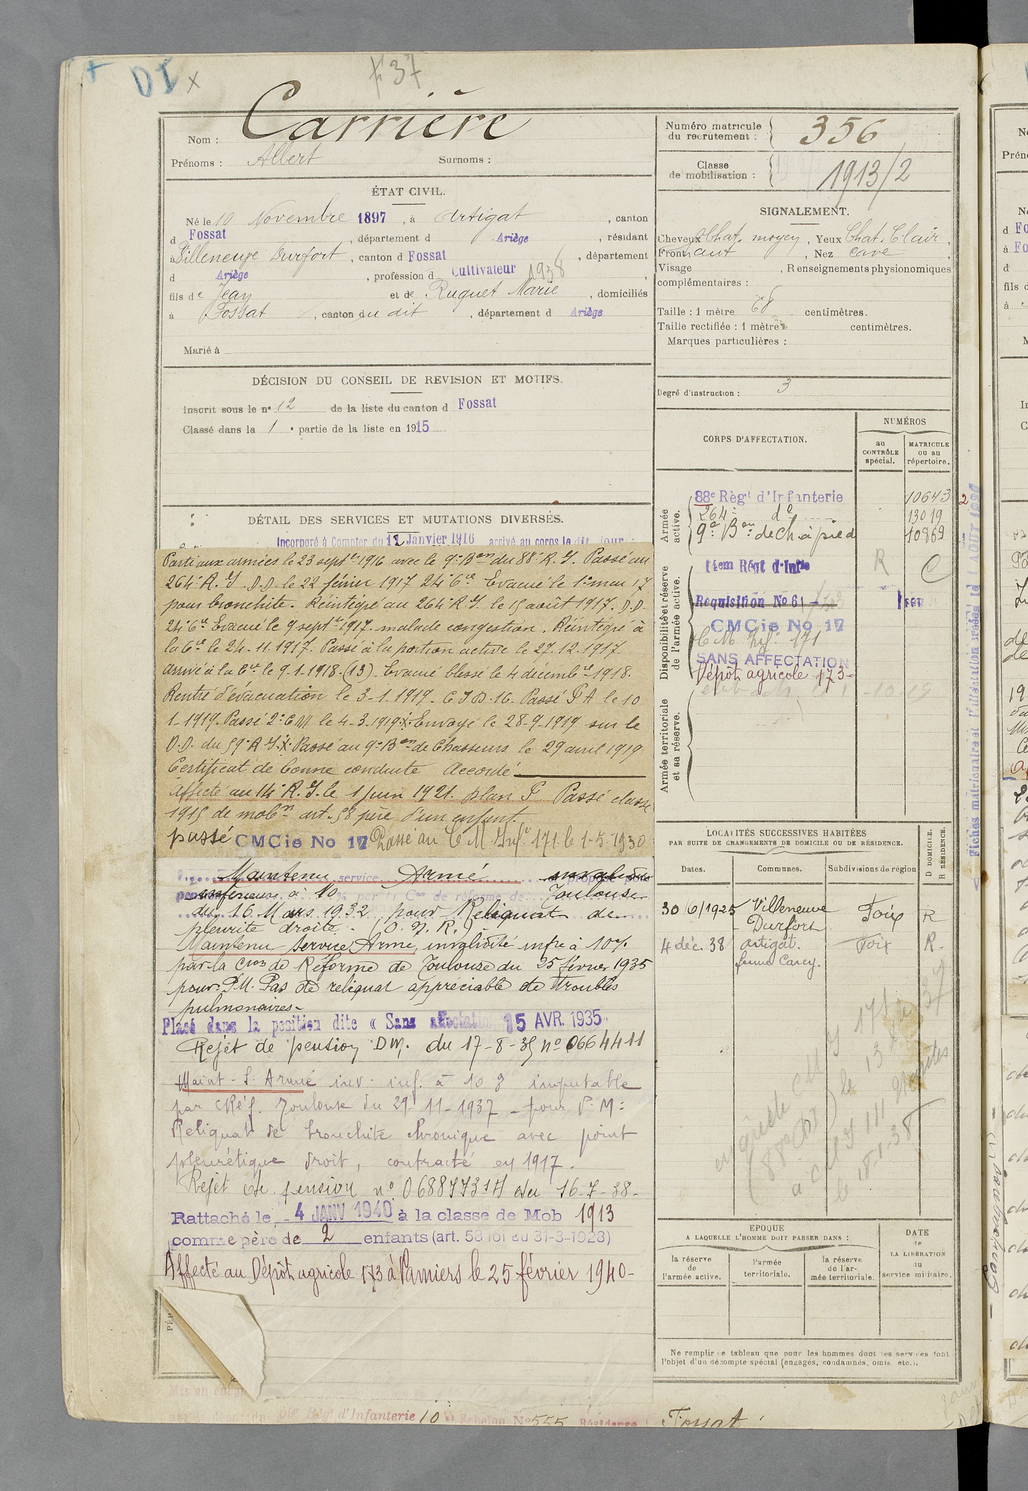 DI x
37
Nom : Carrière
Prénoms : Albert Surnoms :
Numéro matricule du recrutement : 356
Classe de mobilisation : 1913/2
ÉTAT CIVIL.
Né le 10 Novembre 1897, à Artigat, canton
d Fossat, département d Ariège, résidant
Villeneuve Durfort, canton d Fossat, département
d Ariège, profession d Cultivateur 1938
fils de Jean et de Ruquet Marie, domiciliés
à Fossat, canton du dit, département d Ariège
Marié à
SIGNALEMENT.
Cheveux Chat. moyen, Yeux Chat. Clair,
Front haut, Nez cave
Visage, Renseignements physionomiques
complémentaires :
Taille : 1 mètre 68 centimètres.
Taille rectifiée : 1 mètre centimètres.
Marques particulières :
Degré d'instruction : 3
DÉCISION DU CONSEIL DE REVISION ET MOTIFS.
Inscrit sous le n° 12 de la liste du canton d Fossat
Classé dans la 1 e partie de la liste en 1915
DÉTAIL DES SERVICES ET MUTATIONS DIVERSES.
Incorporé à Compter du 12 Janvier 1916 arrivé au corps le dit jour
Parti aux armées le 23 septre 1916 avec le 9e Bon du 88e R.I. Passé au
264e R.I. D.D. le 22 février 1917 24e 6ie Evacué le 1er mai 17
pour bronchite. Réintégré au 264e R.I. le 15 août 1917. D.D.
24e 6ie Evacué le 9 septre 1917 malade congestion. Réintégré à
la 6ie le 24-11-1917. Passé à la portion active le 27.12.1917.
arrivé à la 6ie le 9.1.1918. (13) Evacué blessé le 4 décembre 1918.
Rentré d'évacuation le 3-1-1919. C.I.D. 16. Passé P A le 10
1-1919. Passé 2e C M le 4-3-1919. Envoyé le 28-9-1919 sur le
D.D. du 59e R.I. Passé au 9e Bon de Chasseurs le 29 avril 1919
Certificat de bonne conduite Accordé
Affecté au 14e R.I. le 1 Juin 1921. plan P Passé classe
1915 de mobon art. 58 père d'un enfant
passé CMCie No 17 Passé au C M Infie 171 le 1-5-1930
Maintenu service Armé invalidité
inférieure à 10 Toulouse
du 16 Mars 1932, pour Reliquat de
pleurite droite. (O.N.R.)
Maintenu Service Armé, invalidité infre à 10%
par la Cion de Réforme de Toulouse du 25 février 1935
pour P.M. Pas de reliquat appréciable de troubles
pulmonaires-
Plasé dans la position dite « Sans affectation 15 AVR. 1935
Rejet de pension DM. du 17-8-35 n° 0664411
Maint. S. Armé inv. inf. à 10 % imputable
par CRéf. Toulouse du 29-11-1937 - pour P.M :
Reliquat de bronchite chronique avec point
pleurétique droit, contracté en 1917.
Rejet de pension n° 06887731H du 16-7-38-
Rattaché le 4 JANV 1940 à la classe de Mob 1913
comme père de 2 enfants (art. 58 loi du 31-3-1928)
Affecté au Dépôt agricole 173 à Pamiers le 25 février 1940-
CORPS D'AFFECTATION.
NUMÉROS
au CONTRÔLE spécial.
MATRICULE OU AU répertoire.
Armée active.
88e Règt d'Infanterie 10643
264e do 13019
9e Bon de Ch à pied 10869
Disponibilité et réserve de l'armée active.
14em Regt d'Infie R C
Requisition No 61
CMCie No 17
C M Infie 171
SANS AFFECTATION
Dépôt agricole 173-
Armée territoriale et sa réserve.
LOCALITÉS SUCCESSIVES HABITÉES
PAR SUITE DE CHANGEMENTS DE DOMICILE OU DE RÉSIDENCE.
Dates. Communes. Subdivisions de région
D DOMICILE. R RÉSIDENCE.
30/6/1925 Villeneuve Durfort Foix R
4 déc. 38 Artigat. Foix R.
EPOQUE
A LAQUELLE L'HOMME DOIT PASSER DANS :
la réserve de l'armée active.
l'armée territoriale.
la réserve de l'armée territoriale.
DATE de LA LIBÉRATION du service militaire.
Ne remplir ce tableau que pour les hommes dont les services font
l'objet d'un décompte spécial (engagés, condamnés, omis, etc.).
Régt d'Infanterie 10 Echelon No 555 Résidence Fossat